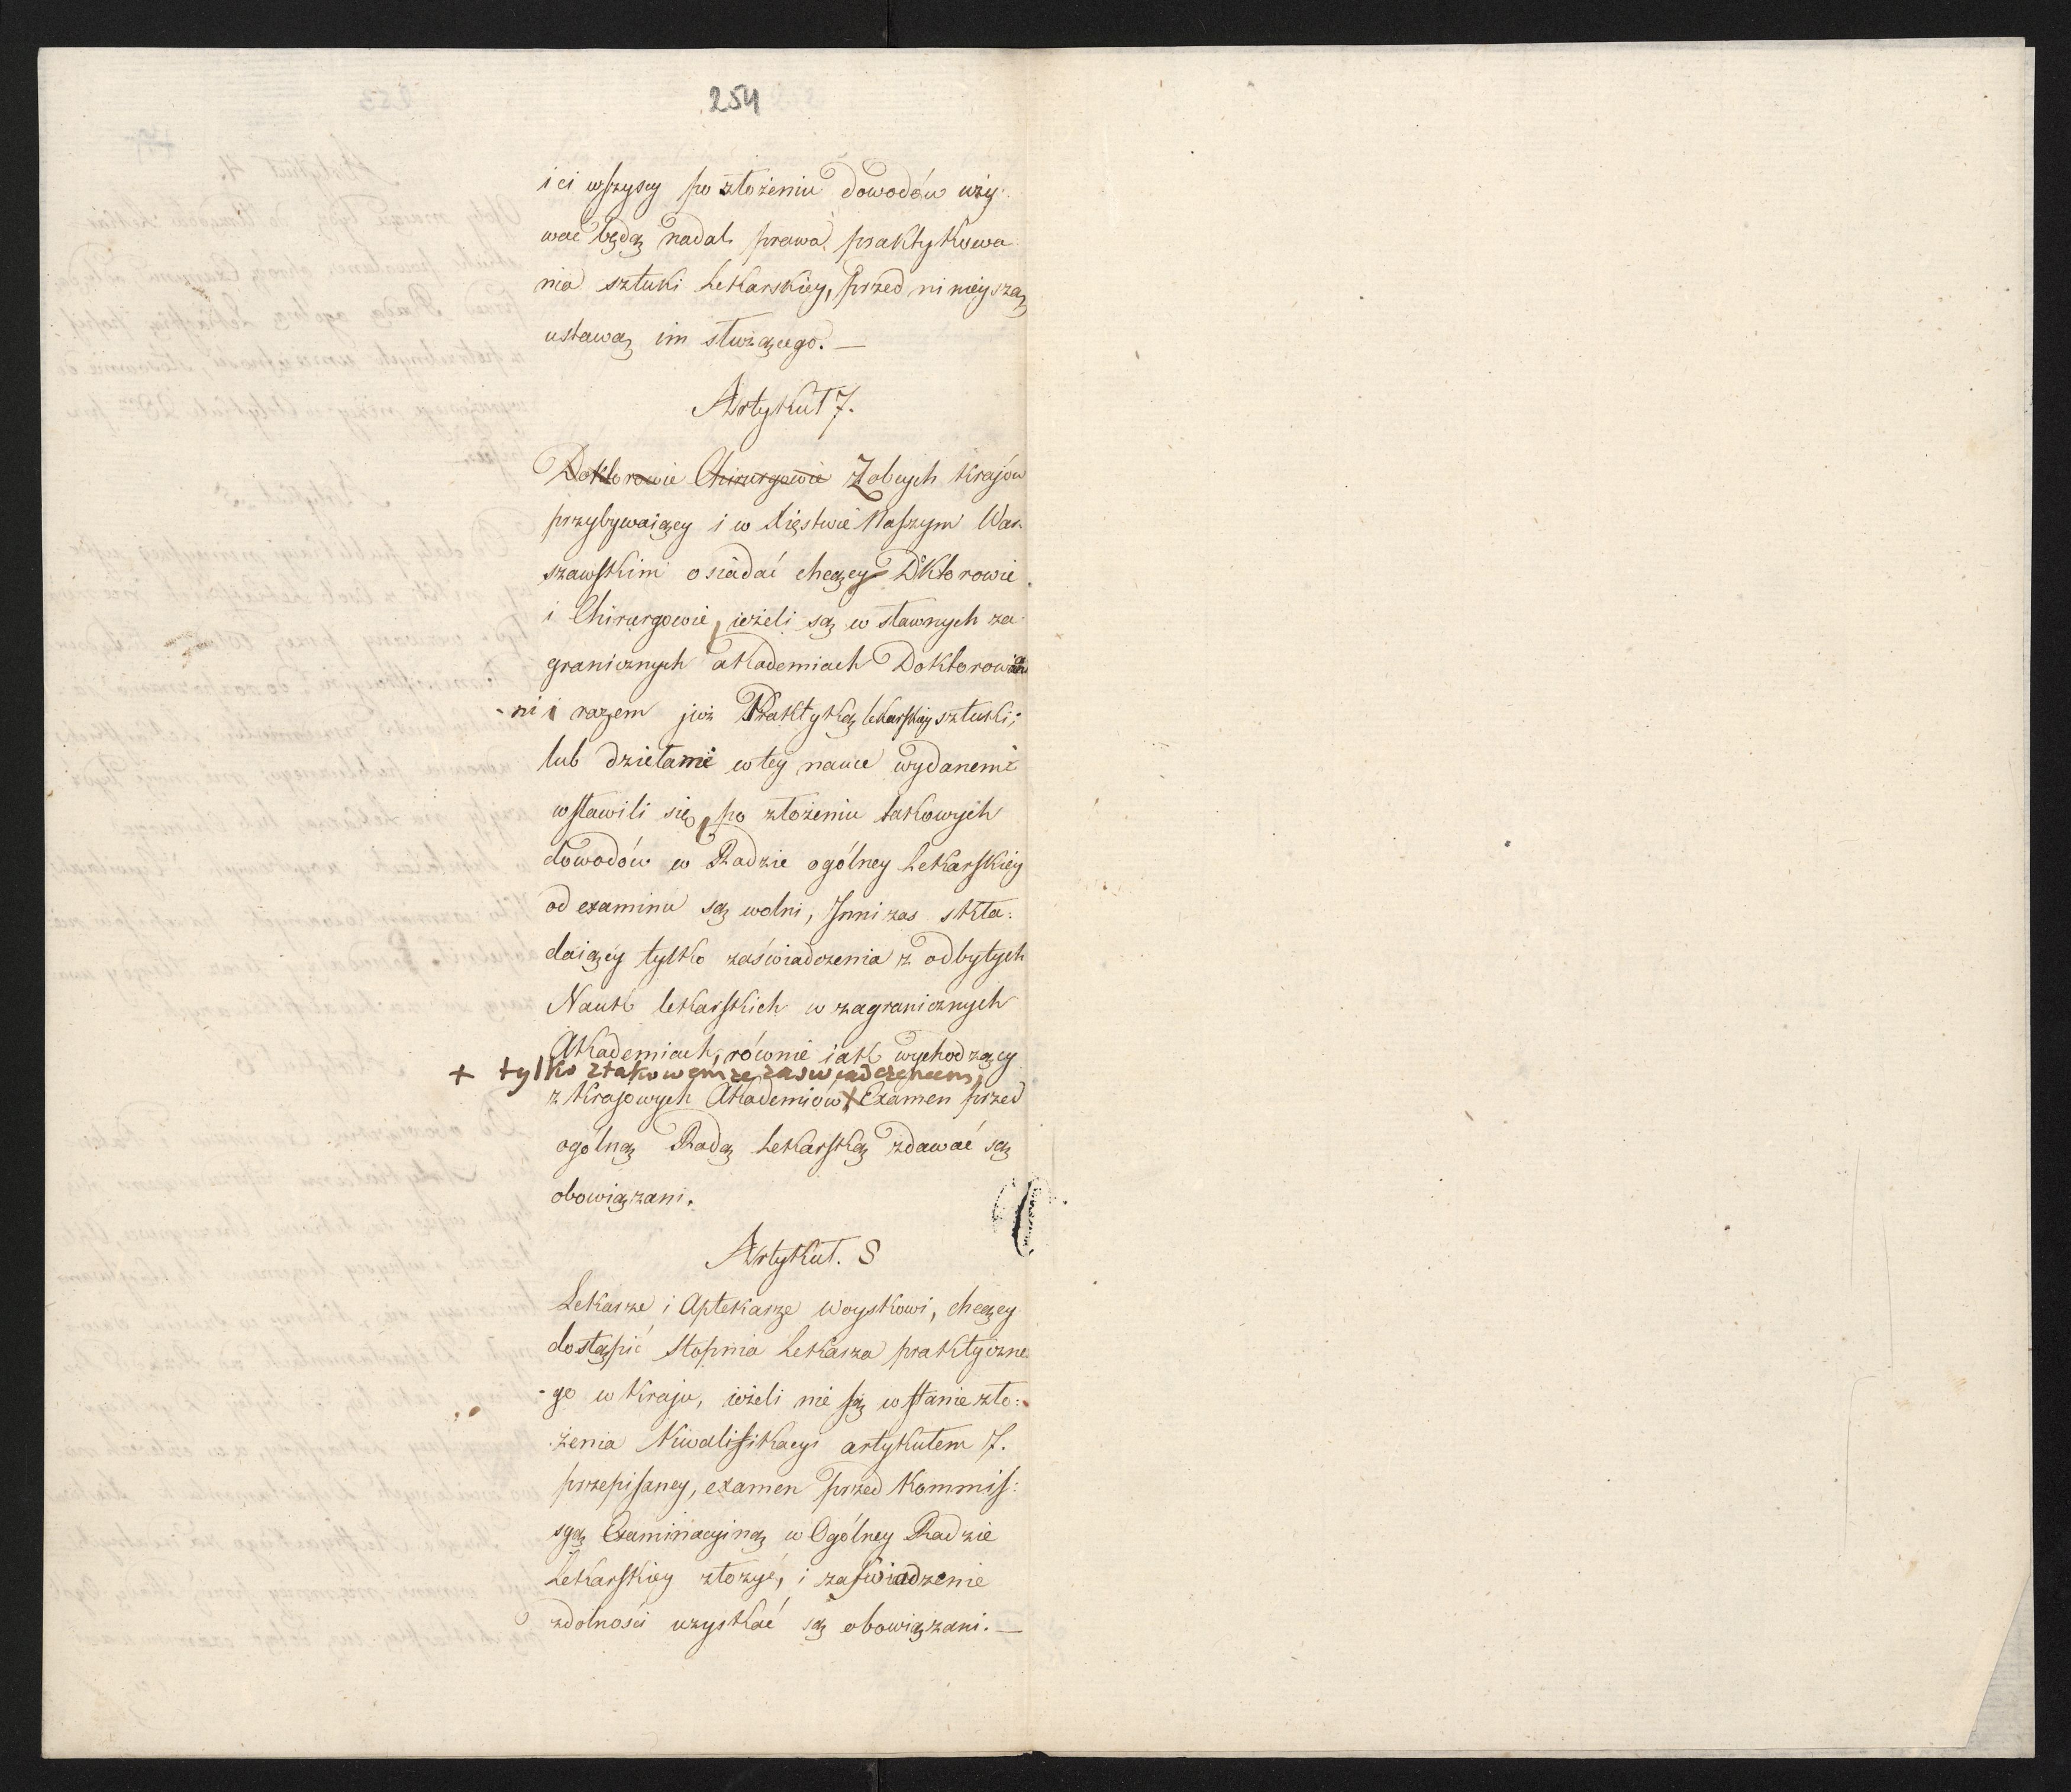 254
i ci wszyscy po złożeniu dowodów uży-
wać będą nadal prawa praktykowa
nia sztuki Lekarskiey, przed ninieyszą
ustawą im służącego. —
Artykuł 7.
Doktorowie Chirurgowie Z obcych krajów
przybywaiący i w Xięstwie Naszym War-
szawskim osiadać chcący Doktorowie
i Chirurgowie, ieżeli są w sławnych za-
granicznych akademiach Doktorowa-
-ni i razem już Praktyką lekarskiey sztuki;
lub dziełami w tey nauce wydanemi
wsławili się, po złożeniu takowych
dowodów w Radzie ogólney Lekarskiey
od examinu są wolni, Inni zas skła:
daiący tylko zaświadczenia z odbytych
Nauk lekarskich w zagranicznych
Akademiach, równie iak wychodzący
+ tylko z takowemże zaswiadczeniem,
z Krajowych Akademiów + Examen przed
ogólną Radą Lekarską zdawać są
obowiązani.
Artykuł. 8
Lekarze i Aptekarze Woyskowi, chcący
dostąpić stopnia Lekarza praktyczne
-go w Kraju, ieżeli nie są w stanie zło:
żenia Kwalifikacyi artykułem 7.
przepisaney, examen przed Kommis:
syą Examinacyiną w Ogólney Radzie
Lekarskiey złożyć, i zaświadzenie
zdolności uzyskać są obowiązani. —